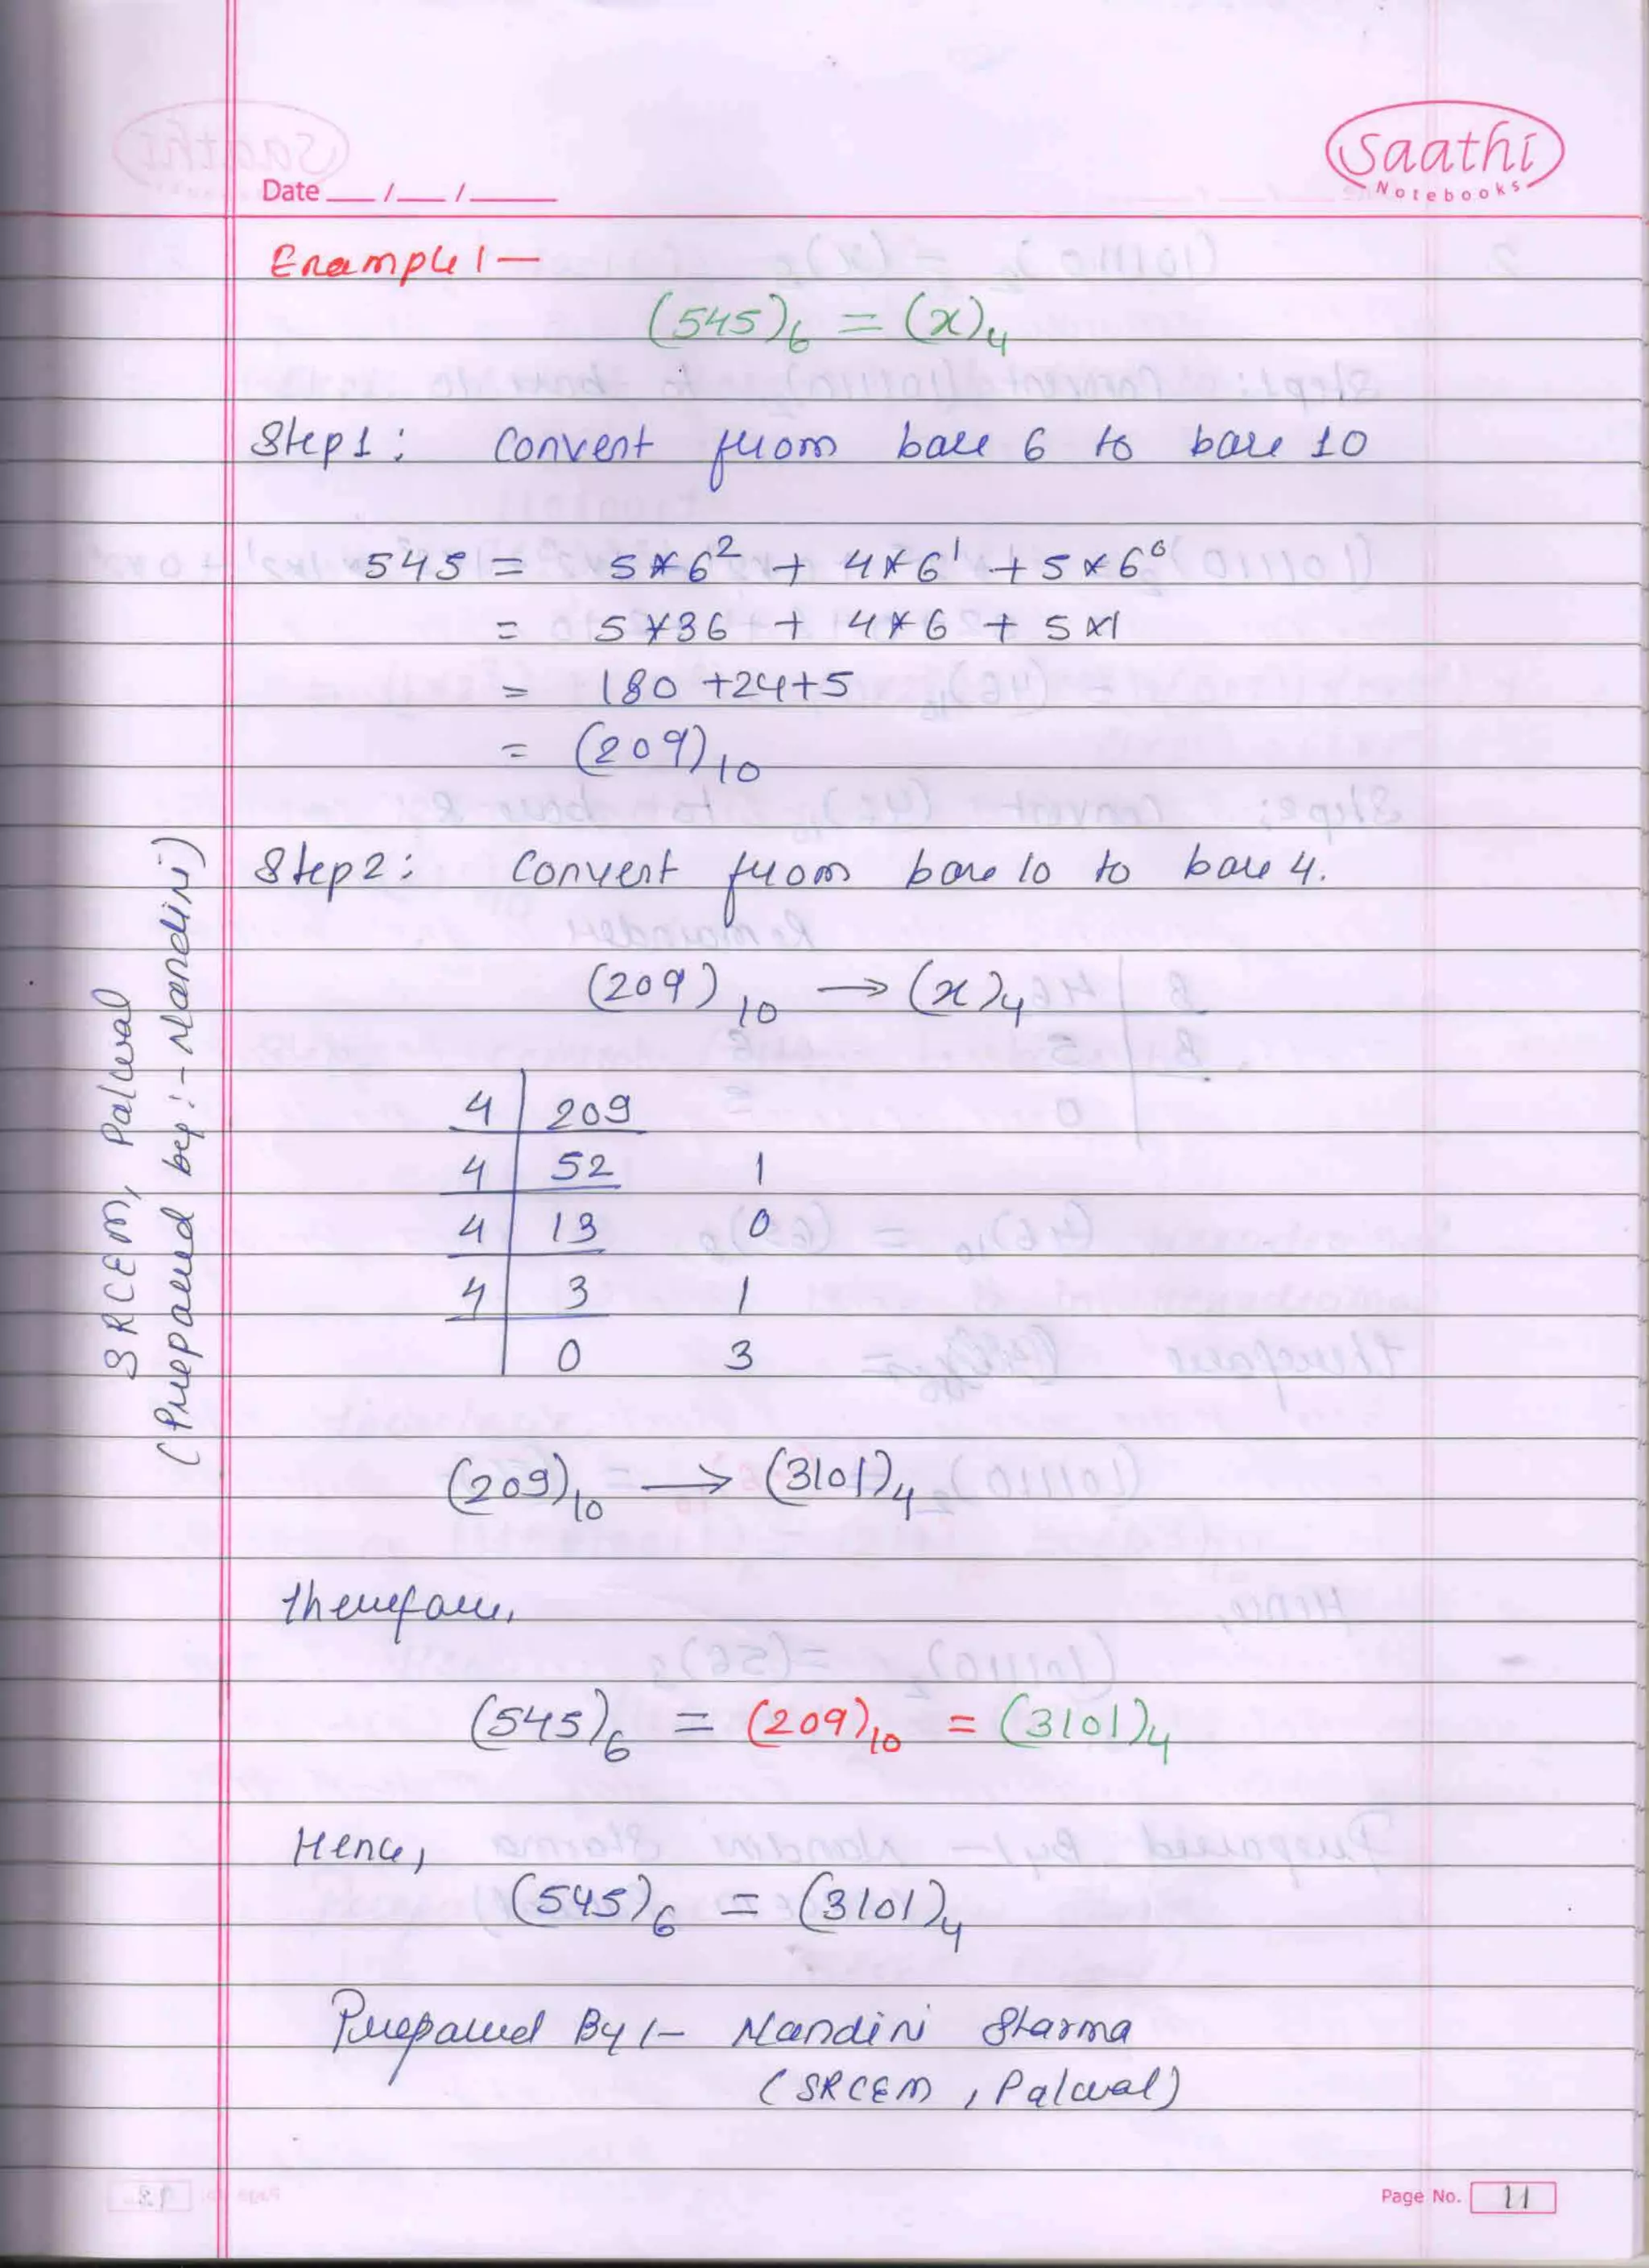 Saathi
Notebooks
Date __/__/____
Example 1 —
(545)₆ = (x)₄
Step1: Convert from base 6 to base 10
545 = 5*6² + 4*6¹ + 5*6⁰
= 5*36 + 4*6 + 5*1
= 180 +24+5
= (209)₁₀
Step2: Convert from base 10 to base 4.
(209)₁₀ → (x)₄
4 | 209
4 | 52 1
4 | 13 0
4 | 3 1
| 0 3
(209)₁₀ → (3101)₄
Therefore,
(545)₆ = (209)₁₀ = (3101)₄
Hence,
(545)₆ = (3101)₄
Prepared By :- Nandini Sharma
(SRCEM, Palwal)
SRCEM, Palwal
(Prepared by :- Nandini)
Page No. 11